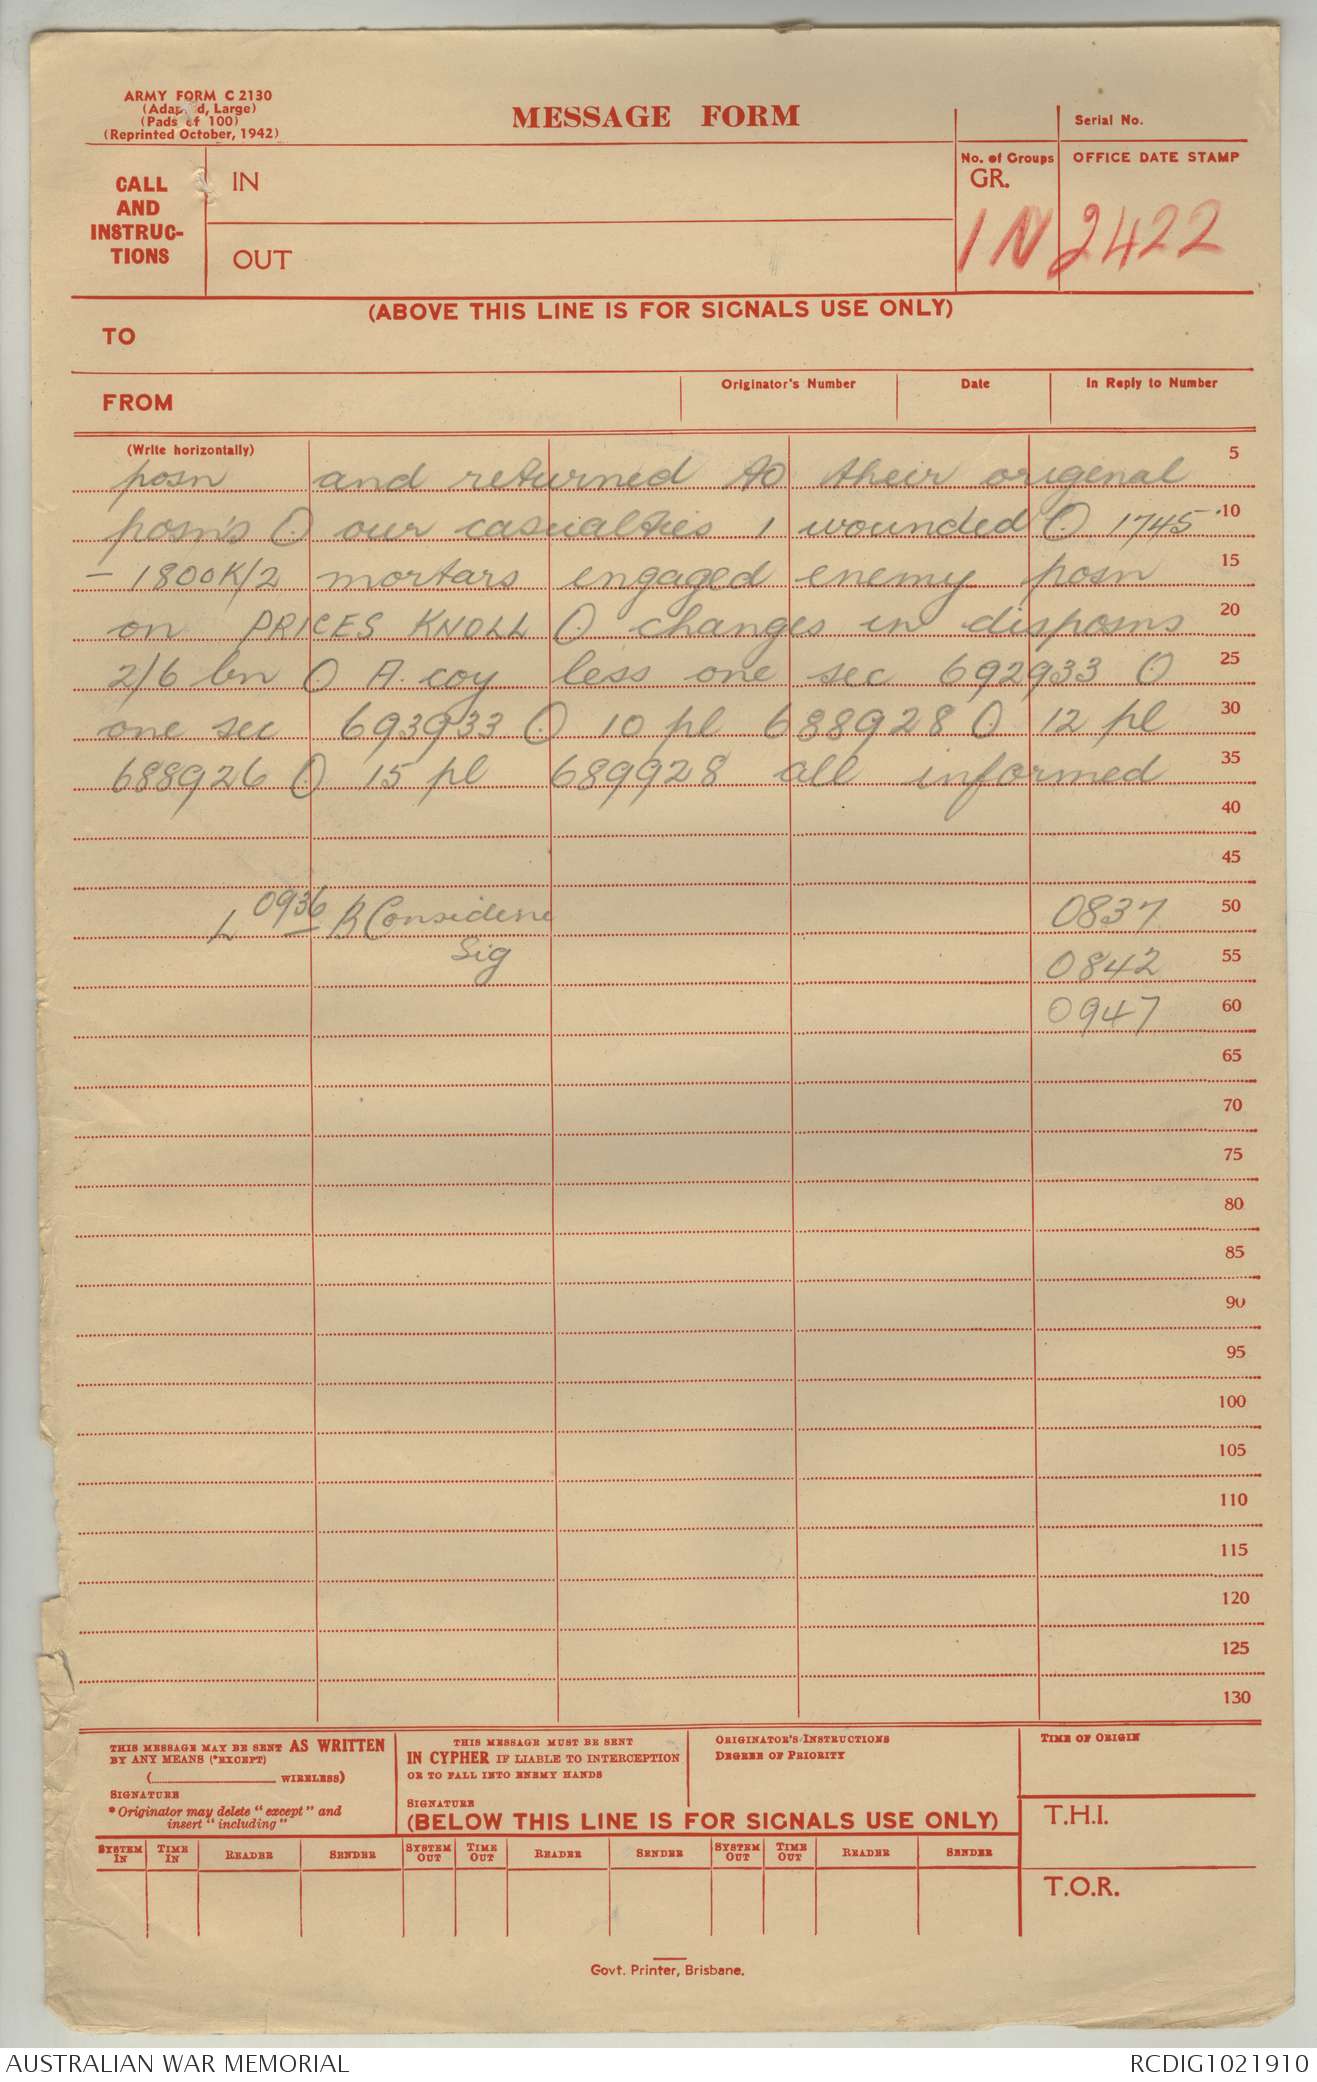 ARMY FORM C 2130
(Adapted, Large)
(Pads of 100)
(Reprinted October, 1942)
MESSAGE FORM
Serial No.
CALL
AND
INSTRUC-
TIONS
IN
OUT
No. of Groups
GR.
OFFICE DATE STAMP
IN 2422
(ABOVE THIS LINE IS FOR SIGNALS USE ONLY)
TO
FROM
Originator's Number
Date
In Reply to Number
(Write horizontally)
posn and returned to their origenal 5
posn's O our casualties 1 wounded O 1745 10
– 1800K/2 mortars engaged enemy posn 15
on PRICES KNOLL O changes in disposns 20
2/6 bn O A. coy less one sec 692933 O 25
one sec 693933 O 10 pl 688928 O 12 pl 30
688926 O 15 pl 689928 all informed 35
40
45
0936 B Considene 0837 50
Sig 0842 55
0947 60
65
70
75
80
85
90
95
100
105
110
115
120
125
130
THIS MESSAGE MAY BE SENT AS WRITTEN
BY ANY MEANS (*EXCEPT)
( WIRELESS)
SIGNATURE
* Originator may delete "except" and
insert "including"
THIS MESSAGE MUST BE SENT
IN CYPHER IF LIABLE TO INTERCEPTION
OR TO FALL INTO ENEMY HANDS
SIGNATURE
ORIGINATOR'S INSTRUCTIONS
DEGREE OF PRIORITY
TIME OF ORIGIN
(BELOW THIS LINE IS FOR SIGNALS USE ONLY)
T.H.I.
SYSTEM IN TIME IN READER SENDER SYSTEM OUT TIME OUT READER SENDER SYSTEM OUT TIME OUT READER SENDER
T.O.R.
Govt. Printer, Brisbane.
AUSTRALIAN WAR MEMORIAL
RCDIG1021910